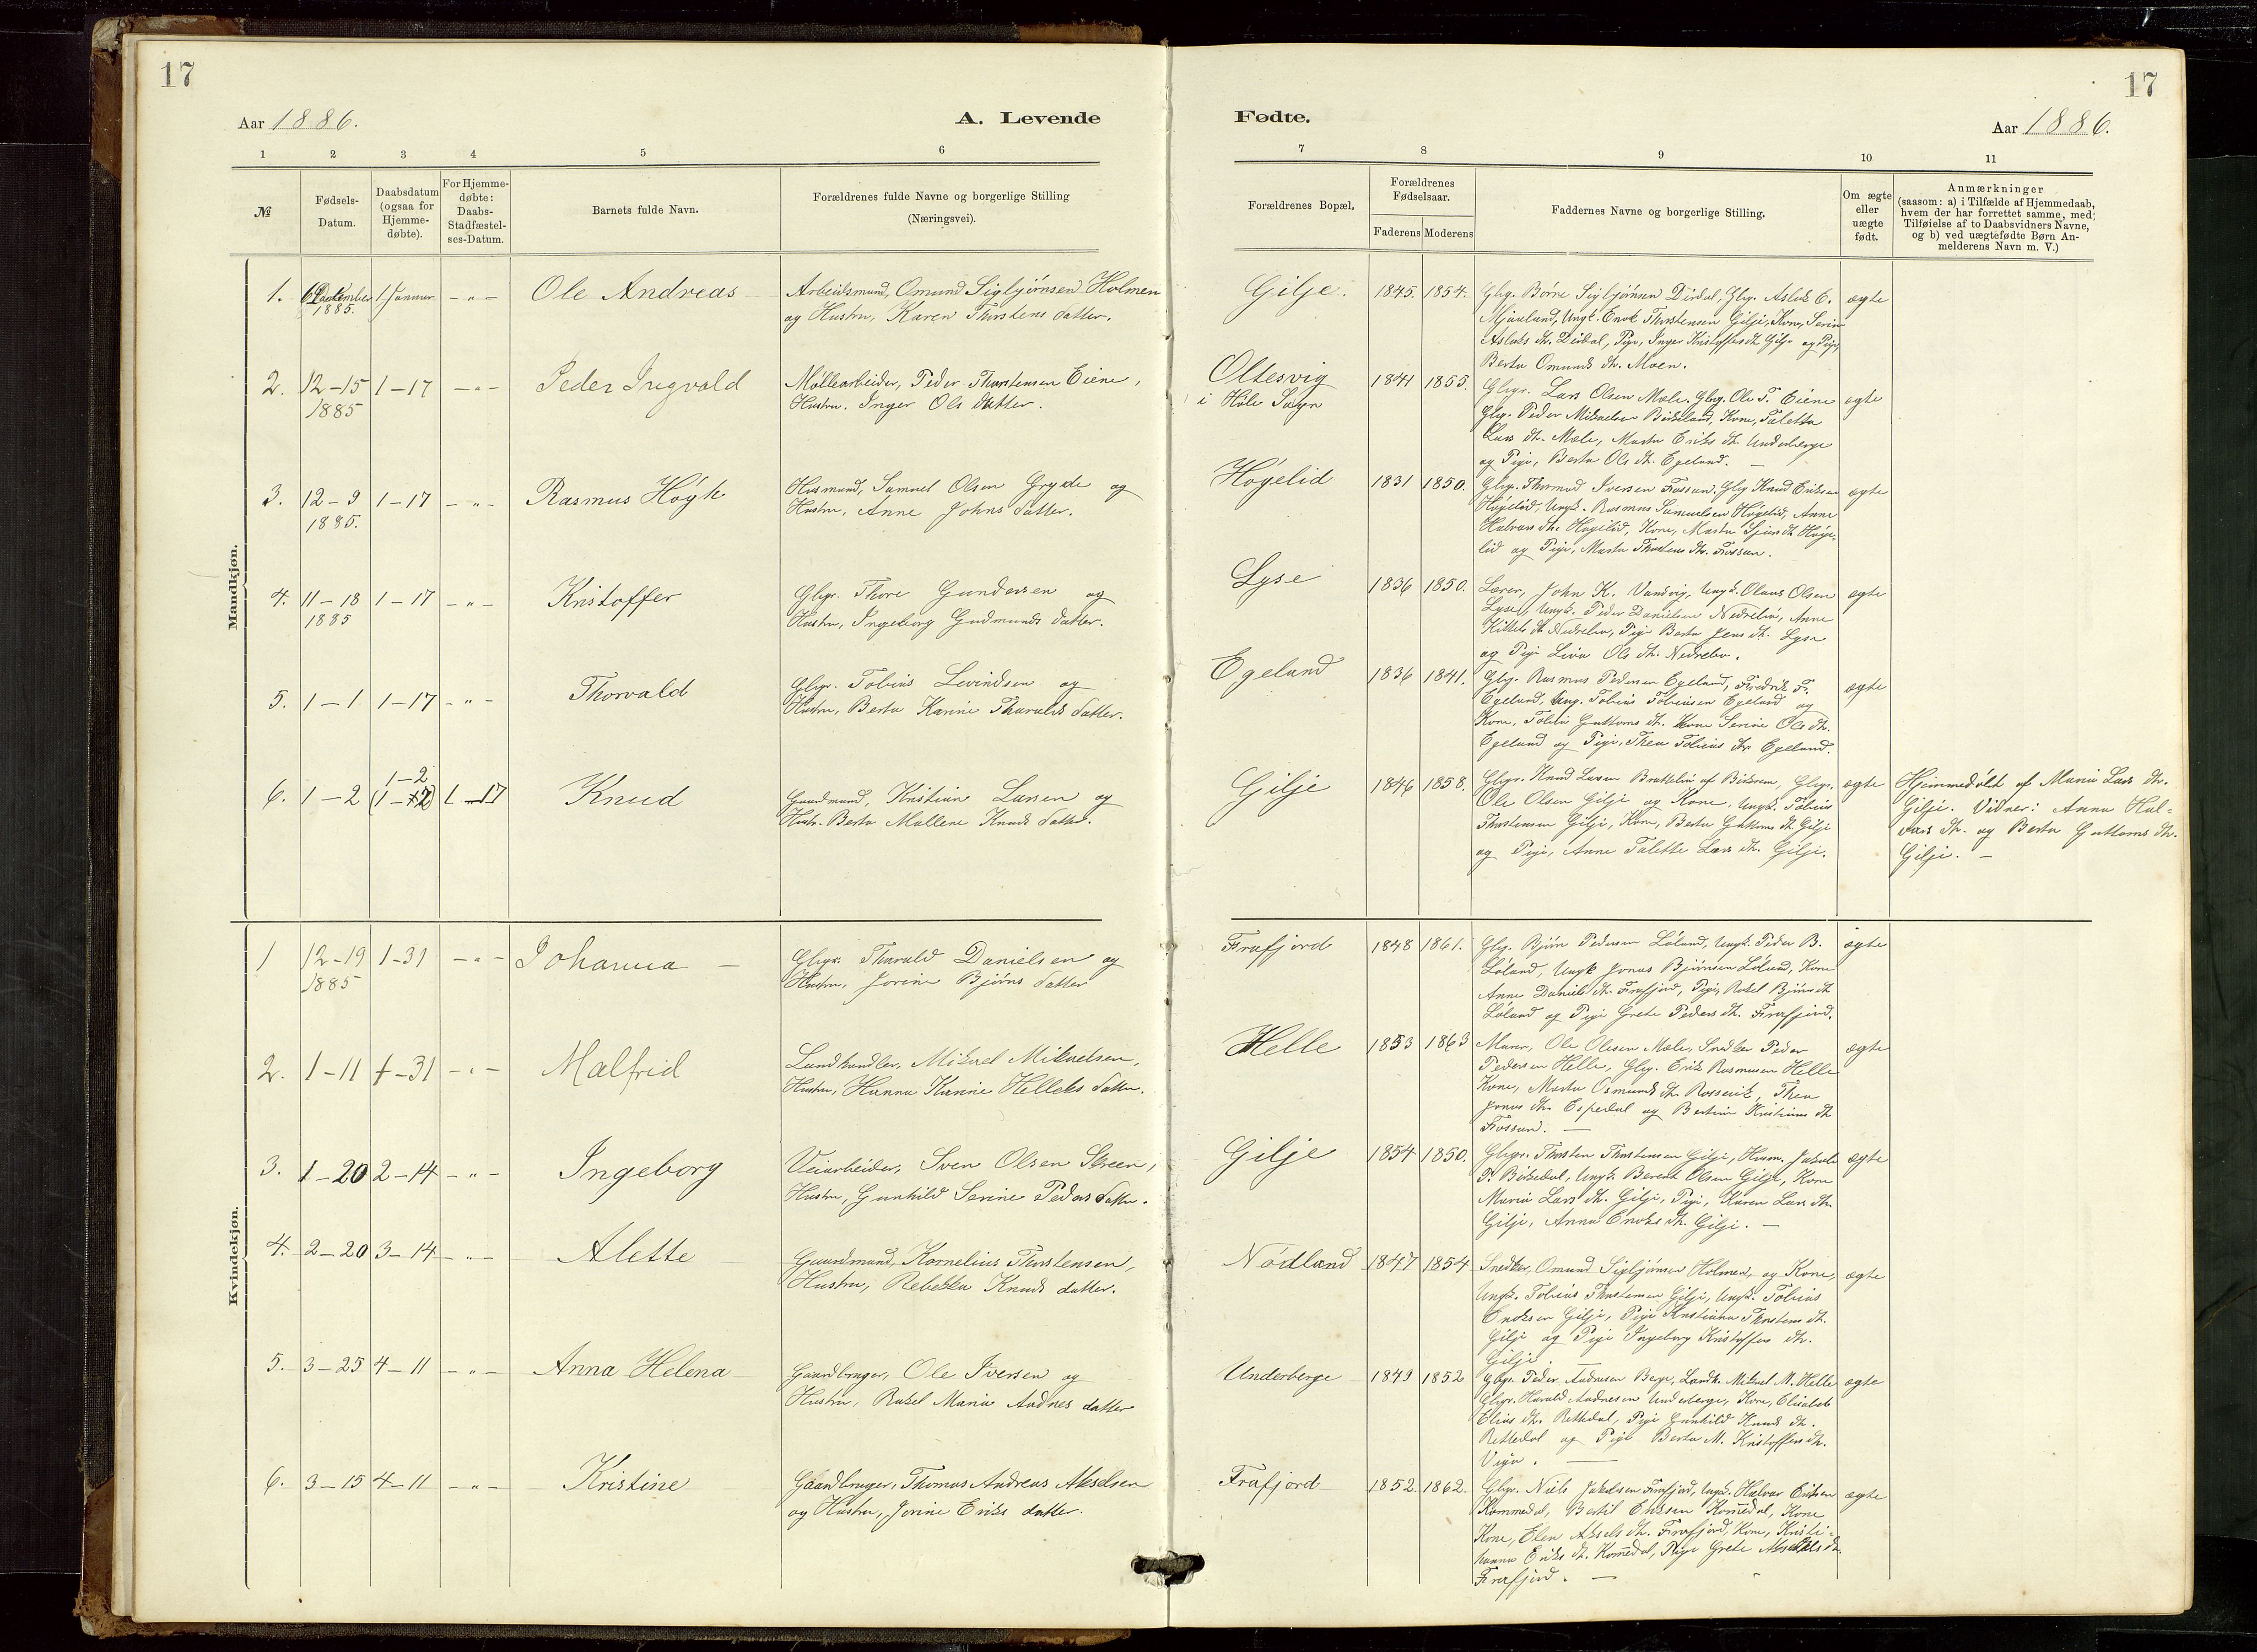 17
Aar 1886.
A. Levende
1 2 3 4 5 6
№
Fødsels-
Datum.
Daabsdatum
(ogsaa for
Hjemme-
døbte).
For Hjemme-
døbte:
Daabs-
Stadfæstel-
ses-Datum.
Barnets fulde Navn.
Forældrenes fulde Navne og borgerlige Stilling
(Næringsvei).
Mandkjøn.
1. 6 December 1 Januar - " - Ole Andreas Arbeidsmand, Omund Sigbjørnsen Holmen
1885. og Hustru, Karen Thorstens datter.
2. 12-15 1-17 - " - Peder Ingvald Møllearbeider, Peder Thorstensen Eiene,
1885 Hustru. Inger Ols datter.
3. 12-9 1-17 - " - Rasmus Høyk Husmand, Samuel Olsen Gryde og
1885. Hustru, Anne Johns datter.
4. 11-18 1-17 - " - Kristoffer Gbgr. Thore Gundersen og
1885 Hustru, Ingeborg Gudmunds datter.
5. 1-1 1-17 - " - Thorvald Gbgr. Tobias Levindsen og
Hustru, Berta Karine Tharalds datter.
1-2
6. 1-2 (1-17) 1-17 Knud Gaardmand, Kristian Larsen og
Hustr. Berta Mallene Knuds datter.
Kvindekjøn.
1 12-19 1-31 - " - Johanna Gbgr. Tharald Danielsen og
1885 Hustru, Jorine Bjørns datter
2. 1-11 1-31 - " - Malfrid Landhandler, Mikael Mikaelsen,
Hustru, Hanna Karine Helleks datter.
3. 1-20 2-14 - " - Ingeborg Veiarbeider, Sven Olsen Skreen,
Hustru, Gunhild Serine Peders datter.
4. 2-20 3-14 - " - Alette Gaardmand, Kornelius Thorstensen,
Hustru, Rebekka Knuds datter.
5. 3-25 4-11 - " - Anna Helena Gaardbruger, Ole Iversen og
Hustru, Rakel Maria Audnes datter
6. 3-15 4-11 - " - Kristine Gaardbruger, Thomas Andreas Akselsen
og Hustru, Jorine Eriks datter.
17
Fødte.
Aar 1886.
7 8 9 10 11
Forældrenes Bopæl.
Forældrenes
Fødselsaar.
Faderens Moderens
Faddernes Navne og borgerlige Stilling.
Om ægte
eller
uægte
født.
Anmærkninger
(saasom: a) i Tilfælde af Hjemmedaab,
hvem der har forrettet samme, med
Tilføielse af to Daabsvidners Navne,
og b) ved uægtefødte Børn An-
melderens Navn m. V.)
Gilje. 1845. 1854. Gbg. Børre Sigbjørnsen Dirdal, Gbg. Aslak E. ægte
Mjaaland, Ungk. Enok Thorstensen Gilje, Kone, Serine
Aslaks dtr. Dirdal, Pige, Inger Kristoffersdtr Gilje og Pige,
Berta Omunds dtr. Moen.
Oltesvig 1841 1855. Gbgr. Lars Olsen Mæle. Gbg. Ole T. Eiene ægte
i Høle Sogn Gbg. Peder Mikaelsen Birkeland, Kone, Taletta
Lars dtr. Mæle, Marta Eriks dtr. Underberge
og Pige, Berta Ols dtr. Egeland.
Høgelid 1831 1850. Gbg. Thormod Iversen Fossan. Gbg Knud Eriksen ægte
Høgelid, Ungk. Rasmus Samuelsen Høgelid, Anne
Halvors dtr. Høgelid, Kone, Marta dtr Høge-
lid og Pige, Marta Thorstens dtr. Fossan.
Lyse 1836 1850. Lærer, John K. Vansvig, Ungk. Olaus Olsen ægte
Lyse, Ungk. Peder Danielsen Nedrebø, Anne
Kittels dtr Nedrebø, Pige Berta Jens dtr. Lyse
og Pige Liva Ols dtr. Nedrebø.
Egeland 1836 1841. Gbg. Rasmus Pedersen Egeland, Fredrik F. ægte
Egeland, Ung. Tobias Tobiasen Egeland og
Kone, Guttorms dtr. Kone Serine Ols dtr.
Egeland og Pige, Thea Tobias dtr Egeland.
Gilje 1846 1858. Gbgr. Knud Larsen Brattebø af Birkrem, Gbgr. ægte Hjemmedøbt af Maria Lars dtr.
Ole Olsen Gilje og Kone, Ungk. Tobias Gilje. Vidner: Anna Hal-
Thorstensen Gilje, Kone, Berta Guttorms dtr. Gilje vars dtr. og Berta Guttorms dtr.
og Pige, Anne Talette Lars dtr. Gilje. Gilje. —
Frafjord 1848 1861. Gbg. Bjørn Pedersen Løland, Ungk. Peder B. ægte
Løland, Ungk Jonas Bjørnsen Løland, Kone
Anne Daniels dtr. Frafjord, Pige, Rakel Bjørns dtr
Løland og Pige Grete Peders dtr. Frafjord.
Helle 1853 1863 Murer, Ole Olesen Mæle, Snedker Peder ægte
Pedersen Helle, Gbg. Erik Rasmusen Helle
Kone, Marta Osmunds dtr. Rossavik, Thea
Jonas dtr. Espedal og Bertine Kristians dtr
Fossan. —
Gilje 1854 1850. Gbgr. Thorsten Thorstensen Gilje, Husm. Jakob ægte
P. Birkedal, Ungk. Berent Olsen Gilje, Kone
Maria Lars dtr. Gilje, Pige, Karen Lars dtr.
Gilje, Anna Enoks dtr. Gilje. —
Nødland 1847 1854 Snedker, Omund Sigbjørnsen Holmen, og Kone, ægte
Ungk. Tobias Thorstensen Gilje, Ungk. Tobias
Enoksen Gilje, Pige Kristianna Thorstens dtr.
Gilje og Pige Ingeborg Kristoffers dtr.
Gilje. —
Underberge 1849 1852 Gbgr. Peder Audnesen Berge, Landh. Mikael M. Helle ægte
Gbgr. Harald Audnesen Underberge, Kone, Elisabet
Elias dtr. Rettedal, Pige Gunhild Knuds dtr.
Rettedal og Pige Berta M. Kristoffers dtr.
Vigu. —
Frafjord 1852. 1862. Gbgr. Niels Jakobsen Frafjord, Ungk. Halvor Eriksen ægte
Kommedal, Bertil Eriksen Kom̄edal, Kone
Kone, Elen Aksels dtr. Frafjord, Kone, Kristi-
hanna Eriks dtr. Kom̄edal, Pige Grete Aksels dtr.
Frafjord. —